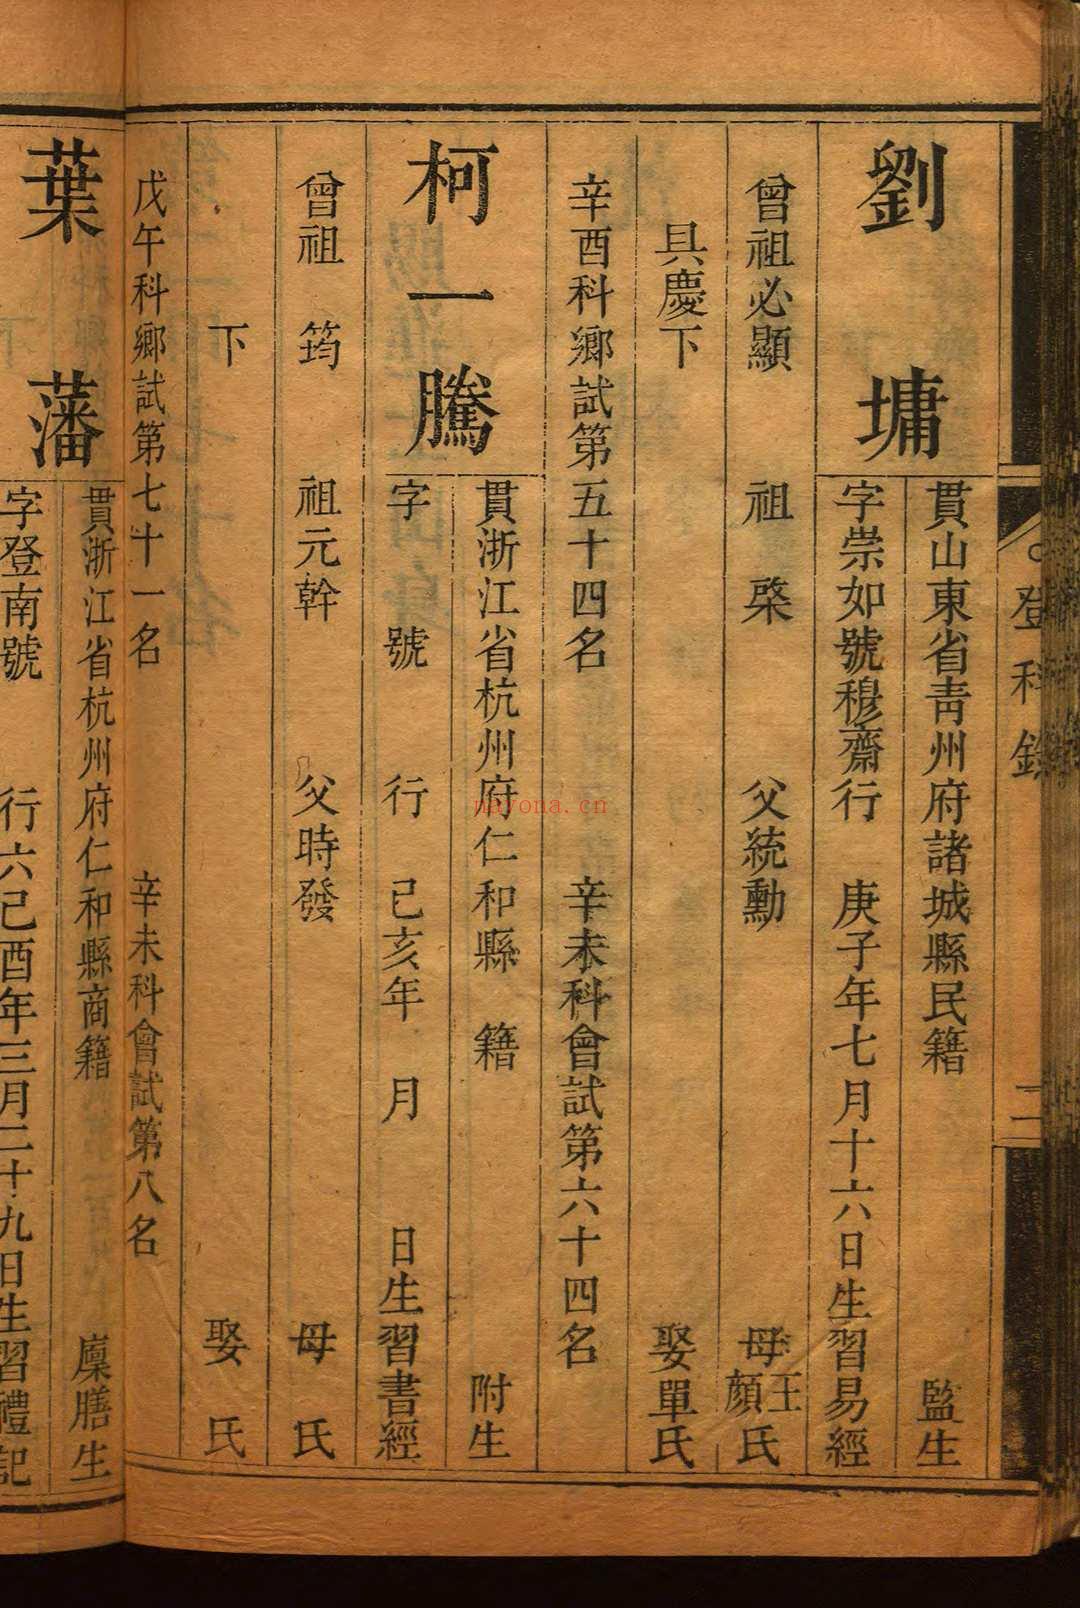 登科錄
二
劉墉
貫山東省青州府諸城縣民籍 監生
字崇如號穆齋行 庚子年七月十六日生習易經
曾祖必顯 祖棨 父統勳 母王顏氏
具慶下 娶單氏
辛酉科鄉試第五十四名 辛未科會試第六十四名
柯一騰
貫浙江省杭州府仁和縣 籍 附生
字 號 行 己亥年 月 日生習書經
曾祖筠 祖元幹 父時發 母 氏
下 娶 氏
戊午科鄉試第七十一名 辛未科會試第八名
葉藩
貫浙江省杭州府仁和縣商籍 廩膳生
字登南號 行六己酉年三月二十九日生習禮記
nayona.cn